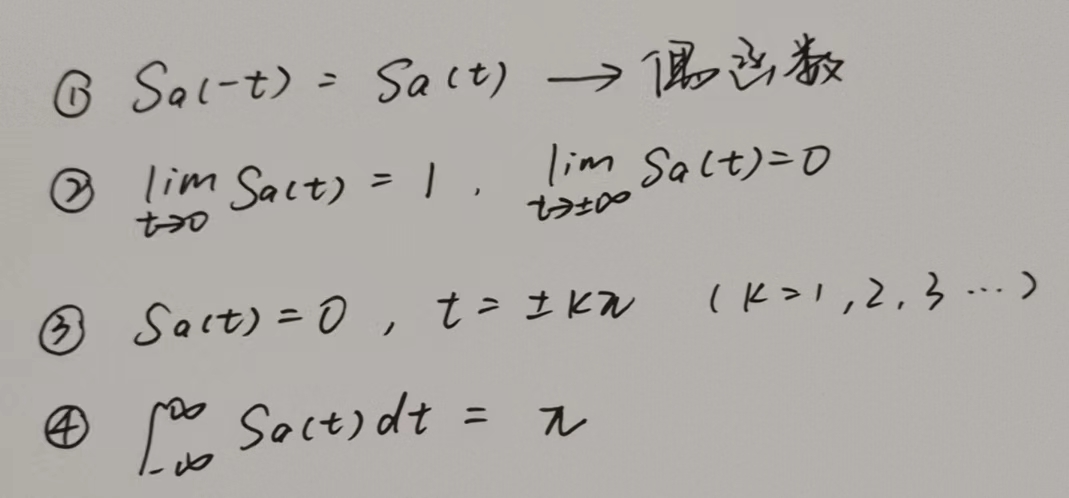 ① Sa(-t) = Sa(t) → 偶函数
② lim_{t→0} Sa(t) = 1 , lim_{t→±∞} Sa(t) = 0
③ Sa(t) = 0 , t = ±kπ (k=1,2,3 ···)
④ ∫_{-∞}^{∞} Sa(t)dt = π